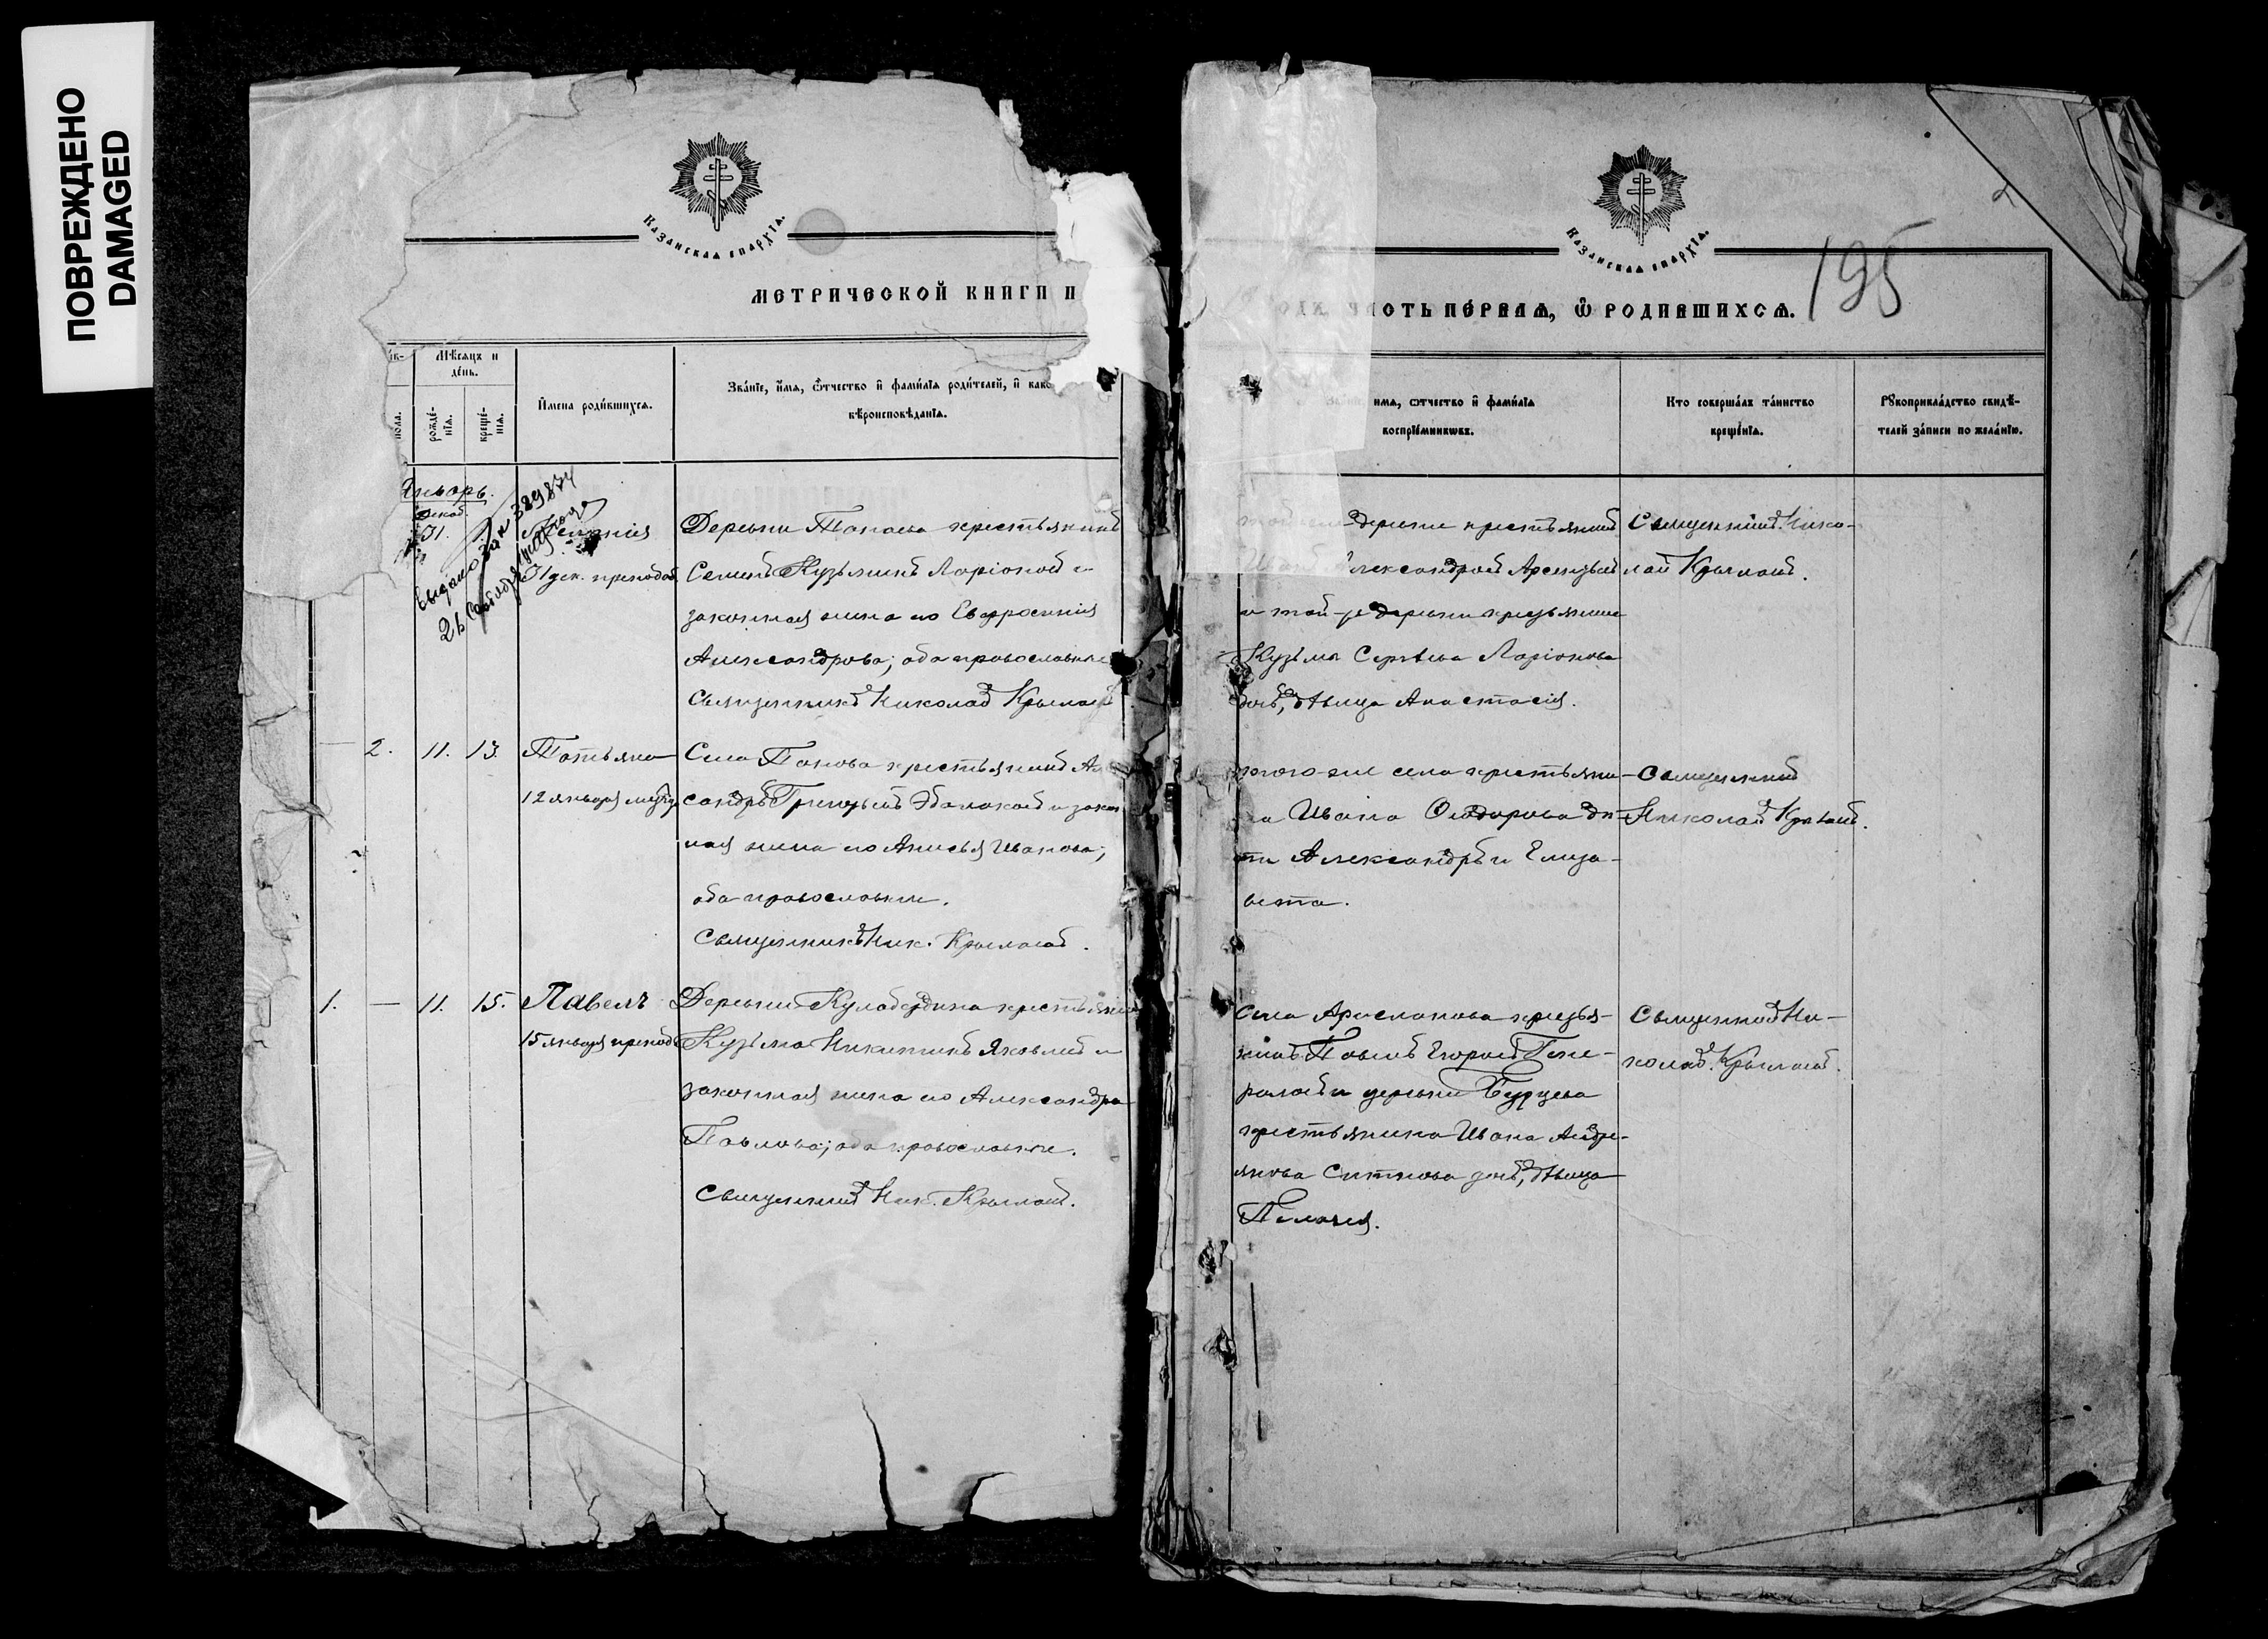 ПОВРЕЖДЕНО
DAMAGED
Казанская епархія.
МЕТРИЧЕСКОЙ КНИГИ Н
Мѣсяцъ и
де́нь.
рожде́-
нїѧ.
креще́-
нїѧ.
пола.
И҆мена роди́вшихсѧ.
Зва́нїе, и҆́мѧ, ѻ҆́тчество и҆ фами́лїѧ роди́телей, и҆ како
вѣроисповѣ́данїѧ.
Январь.
декаб.
31. 1.
31 дек. преподоб.
Деревни Танаева крестьянинъ
Семенъ Кузьминъ Ларіоновъ и
законная жена его Евфросинія
Александрова; оба православные
Священникъ Николай Крыловъ
2. 11. 13. Татьяна
12 января
Села Танаева крестьянинъ
сандръ Григорьевъ и закон
ная жена его Анисья Иванова;
оба православные.
Священникъ Ник. Крыловъ.
1. — 11. 15. Павелъ
15 января препод.
Деревни крестьянинъ
Кузьма Никитинъ Яковлевъ и
законная жена его Александра
Павлова; оба православные.
Священникъ Ник. Крыловъ.
Казанская епархія.
195
ЧАСТЬ ПЕ́РВАѦ, Ѡ҆ РОДИВШИХСѦ.
имѧ, ѻтчество и҆ фами́лїѧ
воспрїе́мниковъ.
Кто соверша́лъ та́инство
креще́нїѧ.
Рꙋкоприкла́дство свидѣ́-
телей за́писи по жела́нїю.
деревни крестьянинъ
Александровъ
и той-же деревни крестьянина
Кузьмы Сергѣева Ларіонова
дочь, дѣвица Анастасія.
Священникъ Нико-
лай Крыловъ.
того-же села крестьяни-
на Ивана Ѳедорова дѣ-
ти Александръ и Елиза-
вета.
Священникъ
Николай Крыловъ.
Села крестья-
нинъ Павелъ Егоровъ Гене-
раловъ и деревни Бурцева
крестьянина Ивана Андре-
янова Ситнова дочь, дѣвица
Пелагея.
Священникъ Ни-
колай Крыловъ.